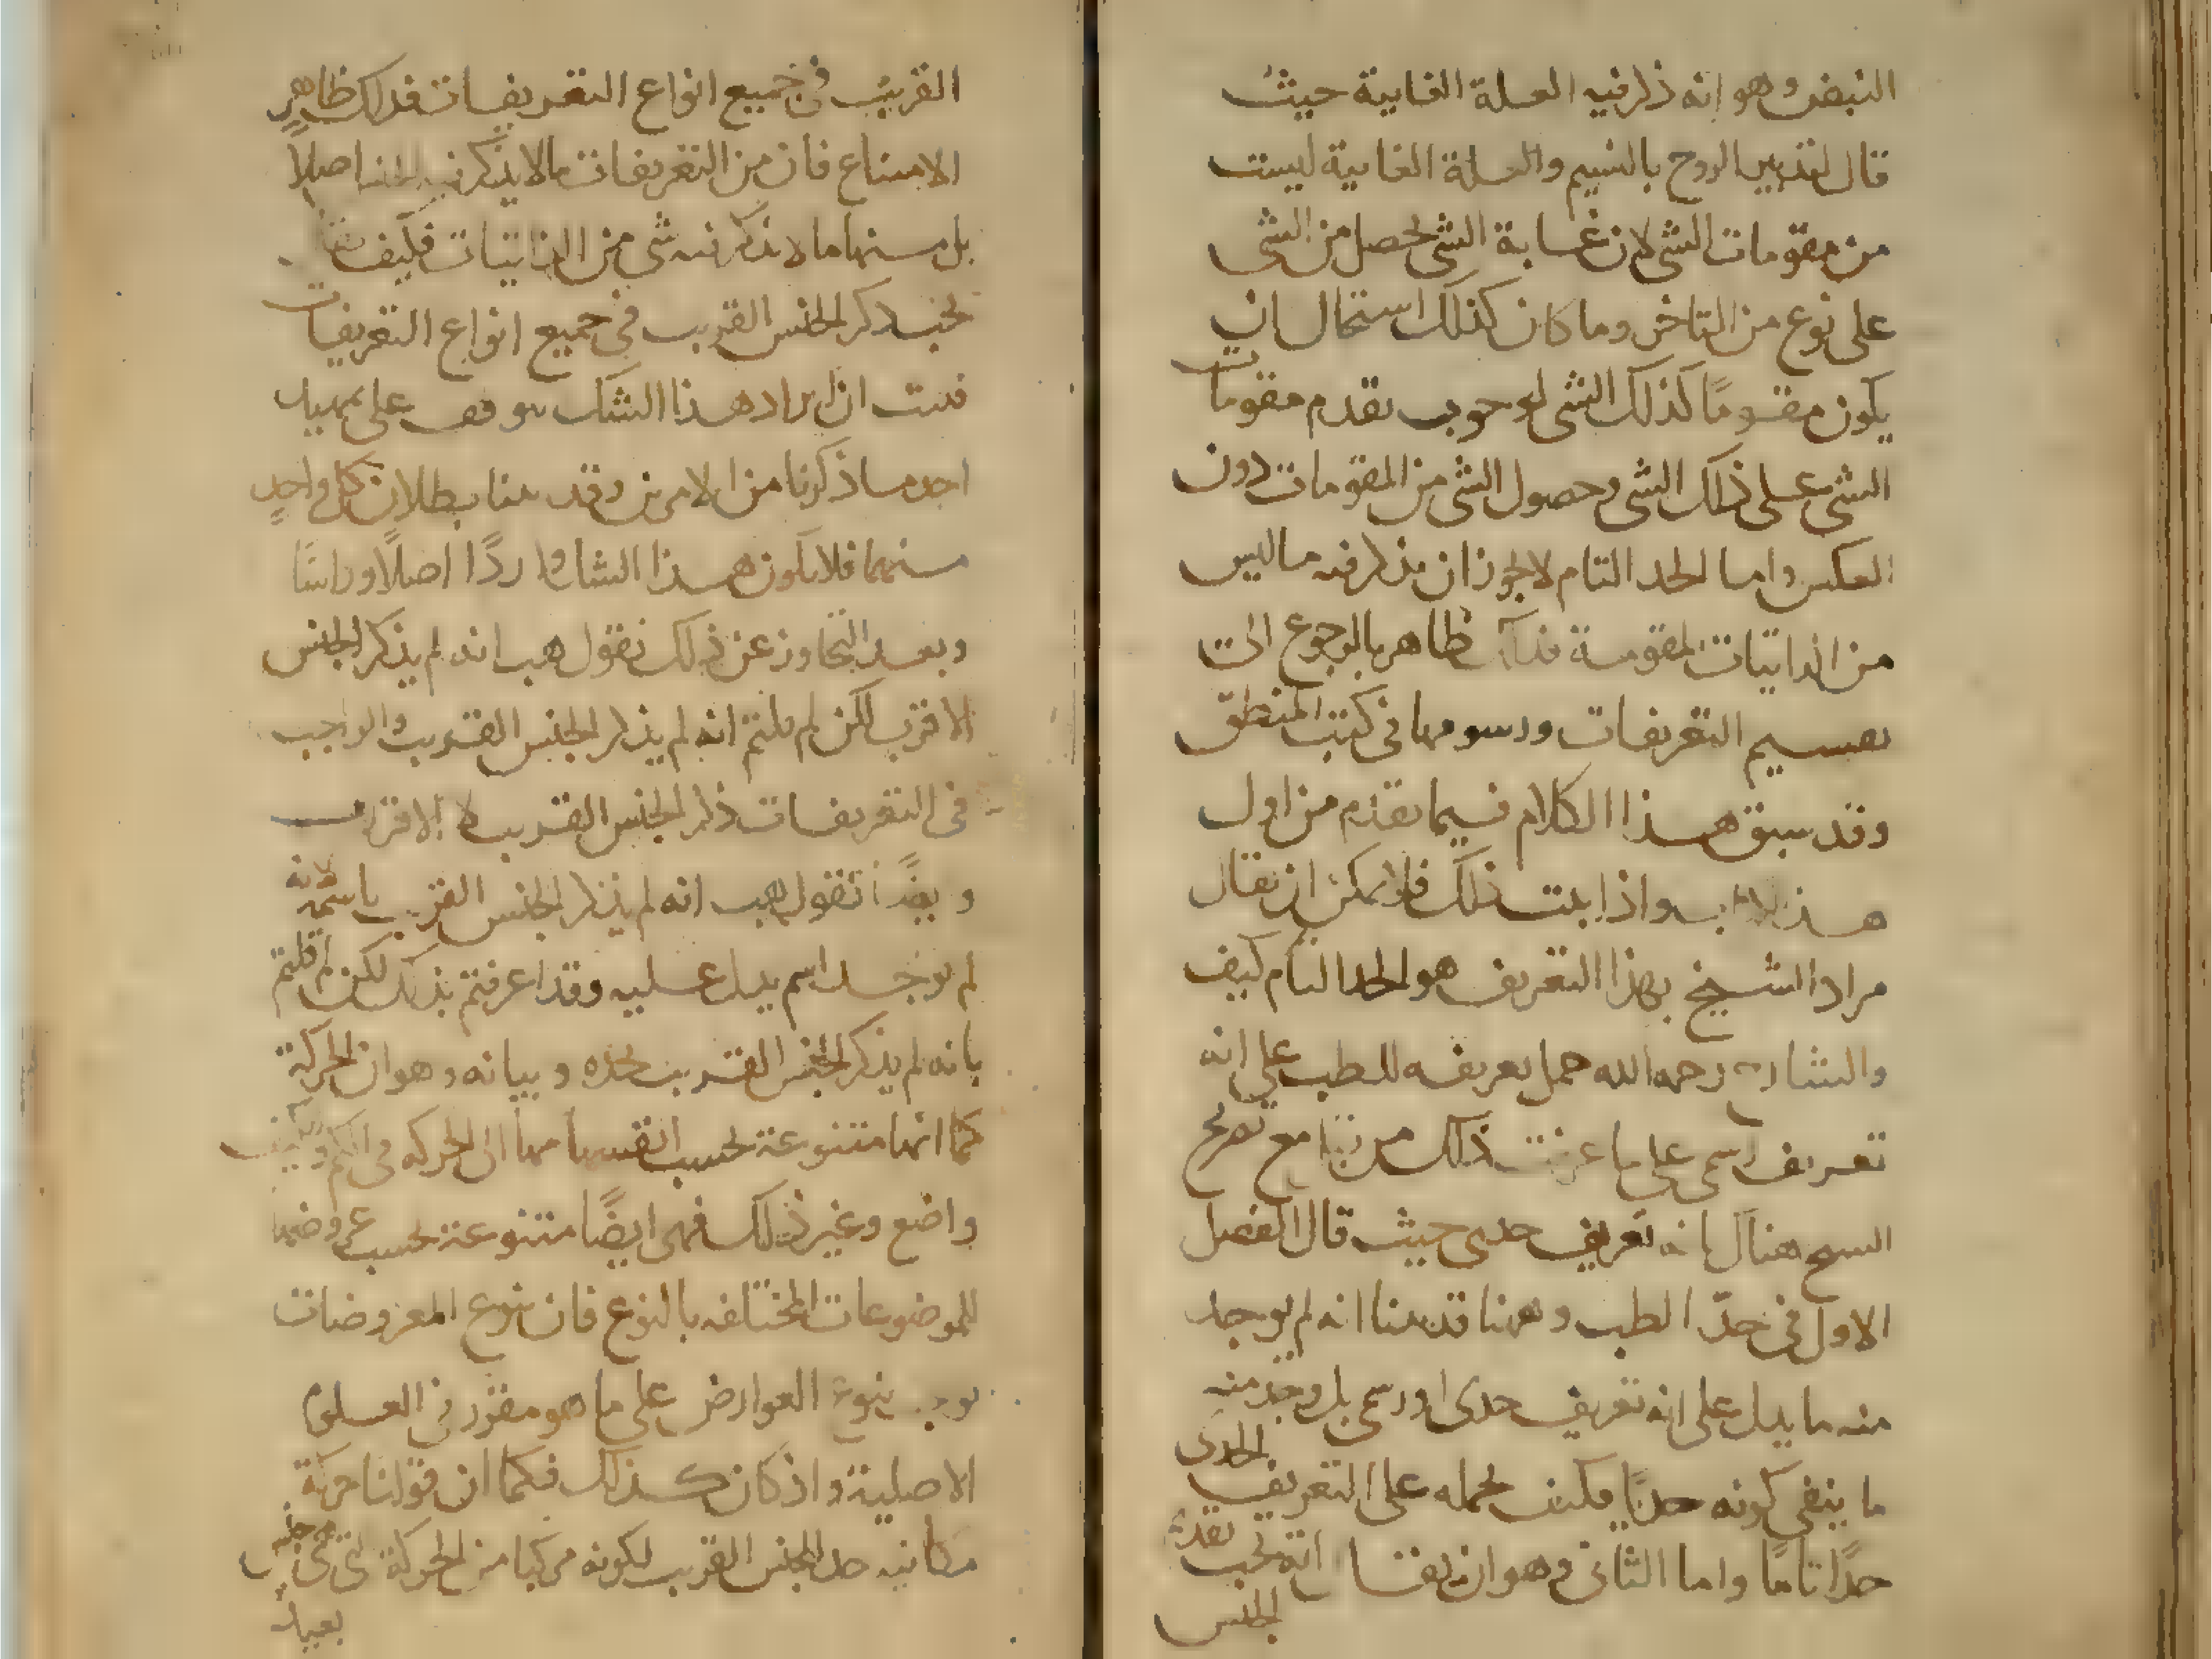 النبض وهو انه ذكر فيه العلة الغايية حيث
قال لتدبير الروح بالنسيم والعلة الغايية ليست
من مقومات الشى لان غاية الشى تحصل من الشى
على نوع من التاخر وما كان كذلك استحال ان
يكون مقوما لذلك الشى لوجوب تقدم مقومات
الشى على ذلك الشى وحصول الشى من المقومات دون
العكس واما الحد التام لا يجوز ان يذكر فيه ما ليس
من الذاتيات المقومة فذلك ظاهر بالرجوع الى
تقسيم التعريفات ورسومها فى كتب المنطق
وقد سبق هذا الكلام فيما تقدم من اول
هذا واذا ثبت ذلك فلا يمكن ان يقال
مراد الشيخ بهذا التعريف هو الحد التام كيف
والشارح رحمه الله حمل تعريفه للطب على انه
تعريف اسمى على ما عرفت ذلك مع تصريح
الشيخ هناك بانه تعريف حدى حيث قال الفصل
الاول فى حد الطب وههنا قد بينا انه لم يوجد
منه ما يدل على انه تعريف حدى او رسمى بل وجد منه
ما ينفى كونه حديا فكيف يحمله على التعريف الحدى
حدا تاما واما الثانى وهو ان يقال انه يجب تقدم
الجنس
القريب فى جميع انواع التعريفات فذلك ظاهر
الامتناع فان من التعريفات ما لا يذكر فيه الجنس اصلا
بل منها ما لا يذكر فيه شى من الذاتيات فكيف
يجب ذكر الجنس القريب فى جميع انواع التعريفات
فثبت ان ايراد هذا الشك موقوف على تمهيد
احد ما ذكرنا من الامرين وقد بينا بطلان كل واحد
منهما فلا يكون هذا الشك واردا اصلا وراسا
وبعد التجاوز عن ذلك نقول هب انه لم يذكر الجنس
الاقرب لكن لم قلتم انه لم يذكر الجنس القريب والواجب
فى التعريفات ذكر الجنس القريب لا الاقرب
وايضا نقول هب انه لم يذكر الجنس القريب باسمه لانه
لم يوجد اسم يدل عليه وقد اعرفتم بذلك لكن لم قلتم
بانه لم يذكر الجنس القريب بحده وبيانه وهو ان الحركة
كما انها متنوعة بحسب انقسامها الى الحركه فى الكم والكيف
واضع وغير ذلك فهى ايضا متنوعة بحسب عروضها
للموضوعات المختلفه بالنوع فان تنوع المعروضات
يوجب تنوع العوارض على ما هو مقرر فى العلوم
الاصلية واذ كان كذلك فكما ان قولنا حركة
مكانيه حد الجنس القريب لكونه مركبا من الحركة التى هى جنس
بعيد